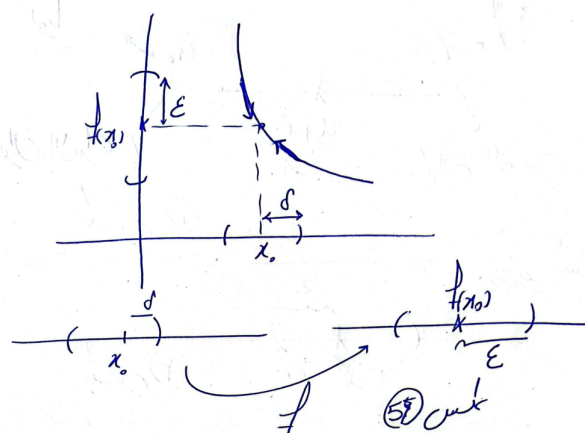 ε
f(x₀)
δ
x₀
δ
x₀
f(x₀)
ε
f